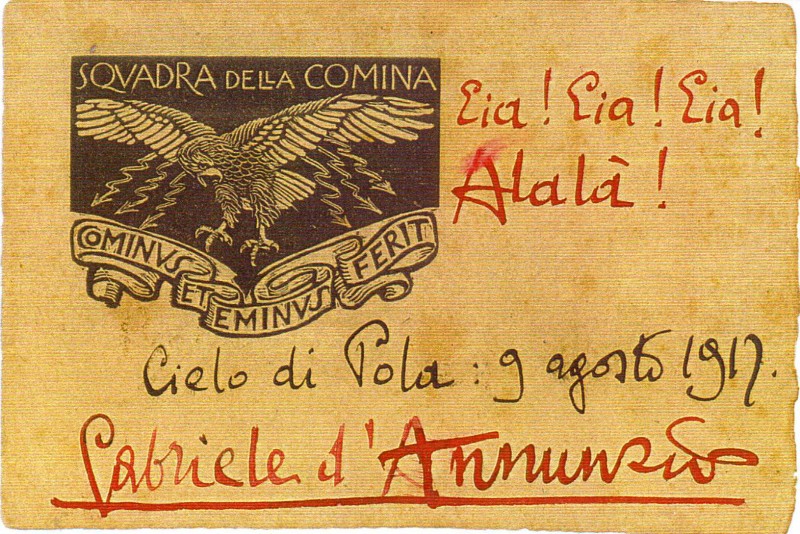 SQVADRA DELLA COMINA
Eia! Eia! Eia!
Alalà!
COMINVS ET EMINVS FERIT
Cielo di Pola: 9 agosto 1917.
Gabriele d'Annunzio